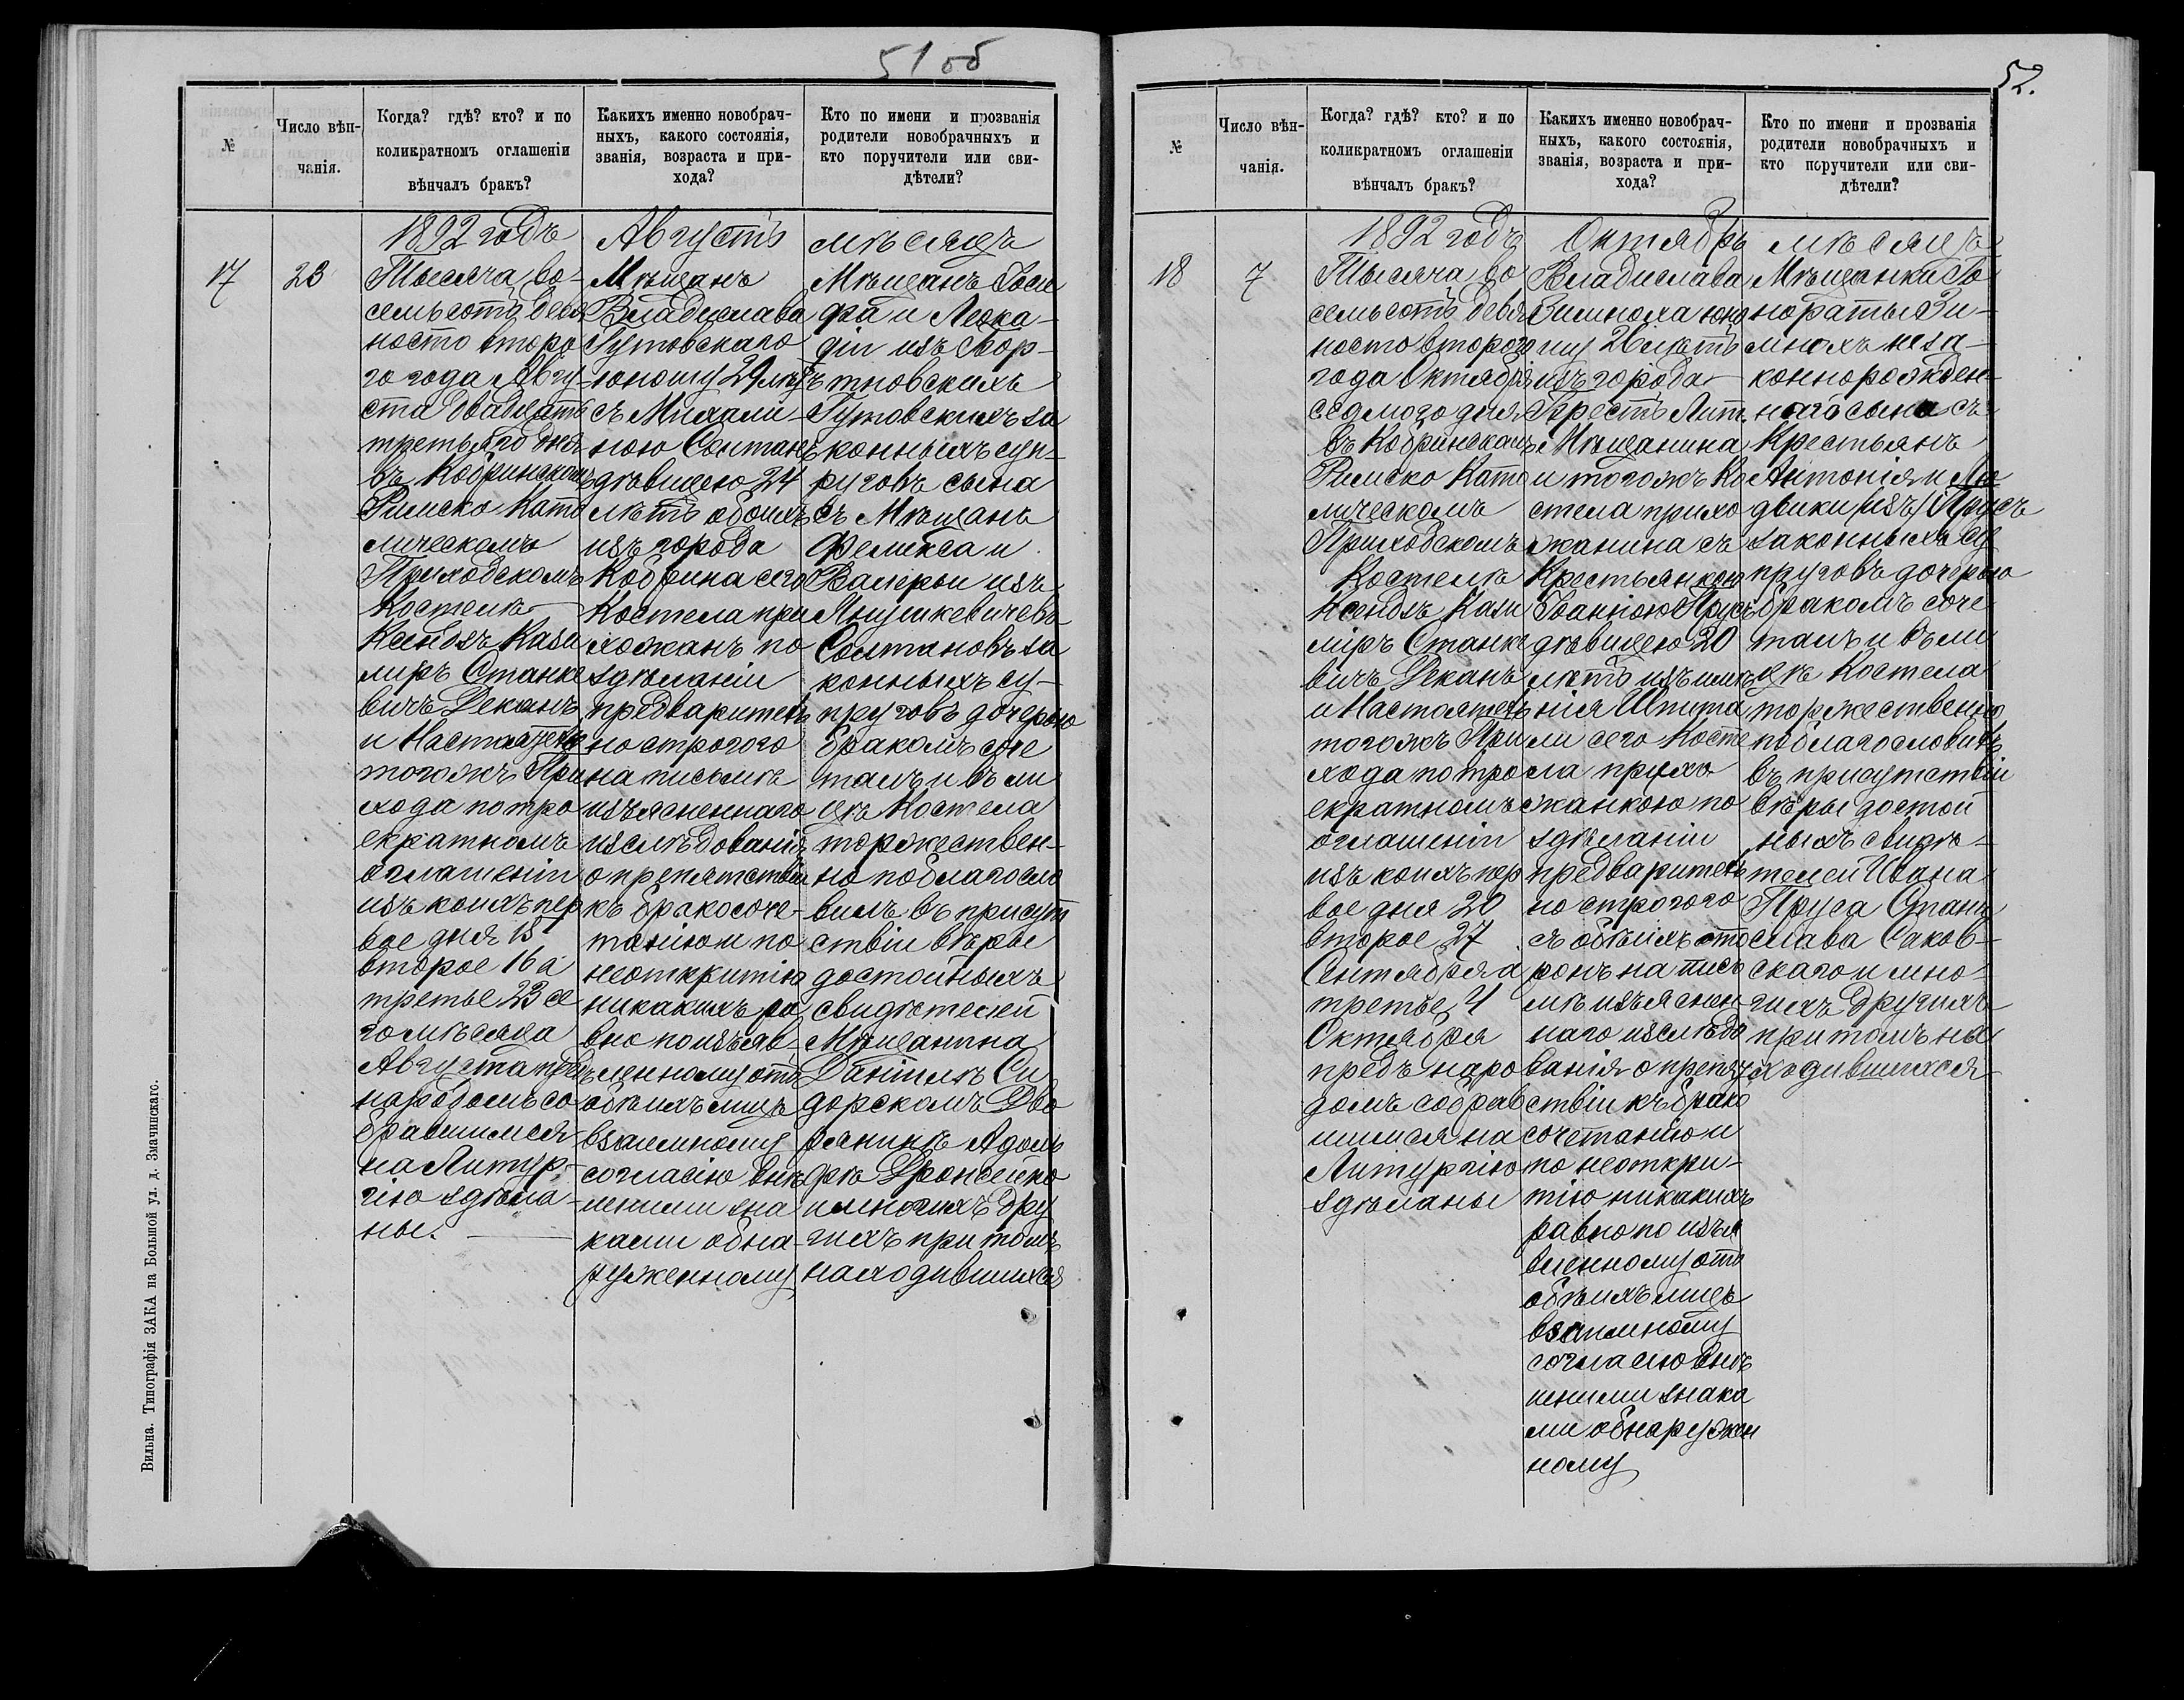 51 об
№
Число вѣн-
чанія.
Когда? гдѣ? кто? и по
коликратномъ оглашеніи
вѣнчалъ бракъ?
Какихъ именно новобрач-
ныхъ, какого состоянія,
званія, возраста и при-
хода?
Кто по имени и прозванія
родители новобрачныхъ и
кто поручители или сви-
дѣтели?
1892 годъ Августъ мѣсяцъ
17
23
Тысяча во-
семьсотъ девя
носто второ
го года Авгу-
ста двадцать
третьяго дня
въ Кобринскомъ
Римско Като
лическомъ
Приходскомъ
Костелѣ
Ксендзъ Кази
миръ Станке
вичъ Деканъ
и Настоятель
тогожъ При
хода по тро
екратномъ
оглашеніи
изъ коихъ пер
вое дня 15
второе 16 а
третье 23 се
го мѣсяца
Августа предъ
народомъ со-
бравшимся
на Литур-
гію здѣла-
ны.
Мѣщанъ
Владислава
Гутовскаго
юношу 29 лѣтъ
съ Михали-
ною Солтанъ
дѣвицею 24
лѣтъ обоихъ
изъ города
Кобрина сего
Костела при
хожанъ по
здѣланіи
предваритель
но строгого
на письмѣ
изъясненнаго
изслѣдованія
о препятствіи
къ бракосоче-
танію и по
неоткрытію
никакихъ ра
вно по изъяв-
ленному отъ
обѣихъ лицъ
взаимному
согласію внѣ
шними зна
ками обна-
руженному
Мѣщанъ Іоси
фа и Леока-
діи изъ
тновскихъ
Гутовскихъ за
конныхъ суп-
руговъ сына
съ Мѣщанъ
Феликса и
Валерьи изъ
Янушкевичевъ
Солтановъ за
конныхъ су-
пруговъ дочерью
бракомъ соче
талъ и въ ли
цѣ Костела
торжествен-
но поблагосло
вилъ въ присут
ствіи вѣры
достойныхъ
свидѣтелей
Мѣщанина
Даніилѣ Си
дорскомъ Дво
рянинѣ Адоль
фѣ
и многихъ дру
гихъ при томъ
находившихся
Вильна. Типографія ЗАКА на Большой ул. д. Змачинскаго.
52.
№
Число вѣн-
чанія.
Когда? гдѣ? кто? и по
коликратномъ оглашеніи
вѣнчалъ бракъ?
Какихъ именно новобрач-
ныхъ, какого состоянія,
званія, возраста и при-
хода?
Кто по имени и прозванія
родители новобрачныхъ и
кто поручители или сви-
дѣтели?
1892 годъ Октябрь мѣсяцъ
18
7
Тысяча во
семьсотъ девя
носто второго
года Октября
седмого дня
въ Кобринскомъ
Римско Като
лическомъ
Приходскомъ
Костелѣ
Ксендзъ Кази
міръ Станке
вичъ Деканъ
и Настоятель
тогожъ При
хода по тро
екратномъ
оглашеніи
изъ коихъ пер
вое дня 20
второе 27
Сентября а
третье 4
Октября
предъ наро
домъ собрав
шимся на
Литургію
здѣланы
Владислава
Зимноха юно
шу 26 лѣтъ
изъ города
Брестъ Лит.
Мѣщанина
и тогожъ Ко
стела прихо
жанина съ
Крестьянкою
Іоанною Прусъ
дѣвицею 20
лѣтъ изъ имѣ
нія Шпита
ли сего Косте
ла прихо
жанкою по
здѣланіи
предваритель
но строгого
съ обѣихъ сто
ронъ на пись
мѣ изъяснен
наго изслѣдо
ванія о препят
ствіи къ брако
сочетанію и
по неоткры-
тію никакихъ
равно по изъя
вленному отъ
обѣихъ лицъ
взаимному
согласію внѣ
шними знака
ми обнаружен
ному
Мѣщанки Го
нораты Зи-
мнохъ неза-
коннорожден-
наго сына съ
Крестьянъ
Антонія и Лю
двики изъ Прусъ
законныхъ су
пруговъ дочерью
бракомъ соче
талъ и въ ли
цѣ Костела
торжественно
поблагословилъ
въ присутствіи
вѣры достой
ныхъ свидѣ-
телей Ивана
Пруса Стани
слава Саков-
скаго и мно
гихъ другихъ
притомъ на
ходившихся